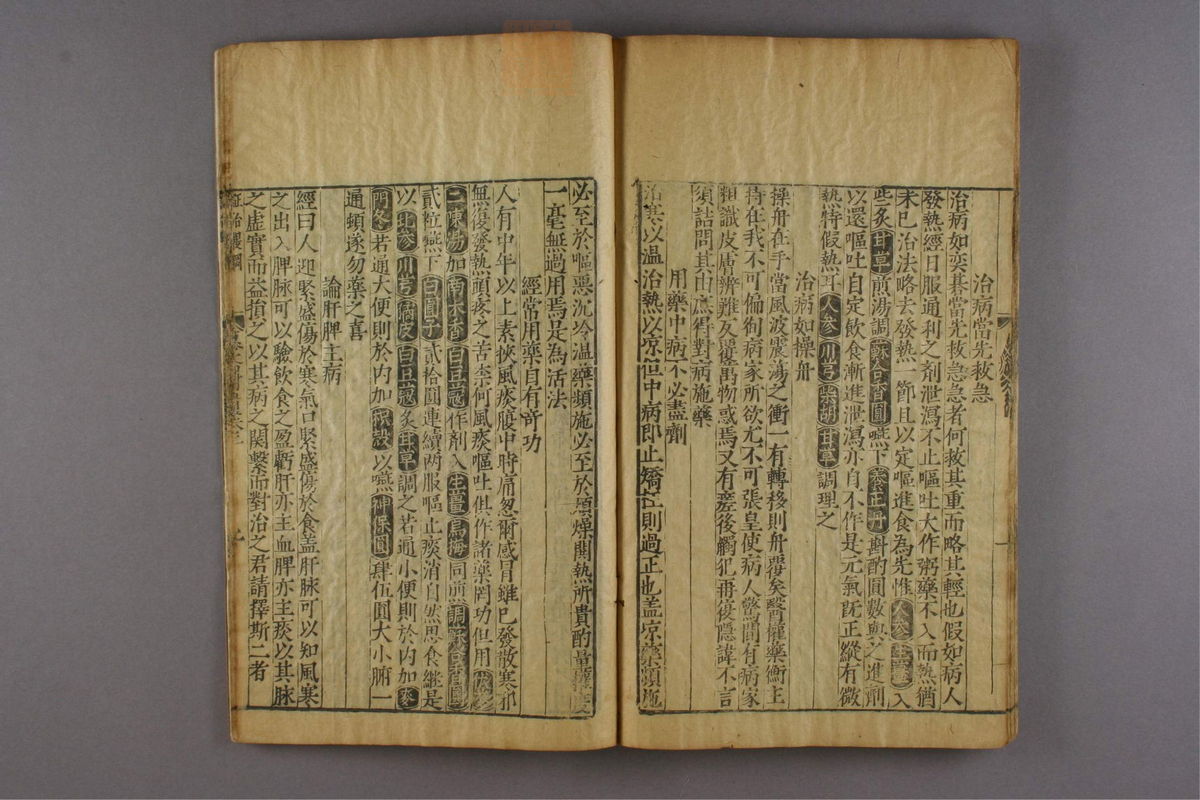 治病當先救急
治病如奕碁當先救急急者何救其重而略其輕也假如病人
發熱經日服通利之劑泄瀉不止嘔吐大作粥藥不入而熱猶
未已治法略去發熱一節且以定嘔進食為先惟人參生薑入
些炙甘草煎湯調蘇合香圓嚥下養正丹斟酌圓數與之進劑
以還嘔吐自定飲食漸進泄瀉亦自不作是元氣既正縱有微
熱特假熱耳人參川芎柴胡甘草調理之
治病如操舟
操舟在手當風波震蕩之衝一有轉移則舟覆矣醫權藥衡主
持在我不可偏徇病家所欲尤不可張皇使病人驚間有病家
粗識皮膚辨難反覆萬物惑焉又有瘥後觸犯再復隱諱不言
須詰問其由庶得對病施藥
用藥中病不必盡劑
治寒以温治熱以凉但中病即止矯枉則過正也盖凉藥頻施
必至於嘔惡沉冷温藥頻施必至於煩燥悶熱所貴酌量權度
一毫無過用焉是為活法
經常用藥自有奇功
人有中年以上素挾風痰腹中時痛忽爾感冒雖已發散寒邪
無復發熱頭疼之苦柰何風痰嘔吐俱作諸藥罔功但用
二陳湯加南木香白豆蔻作劑入生薑烏梅同煎調蘇合香圓
貳粒嚥下白圓子貳拾圓連續两服嘔止痰消自然思食継是
以人參川芎橘皮白豆蔻炙甘草調之若通小便則於内加麥
門冬若通大便則於内加枳殼以嚥神保圓肆伍圓大小腑一
通頓遂勿藥之喜
論肝脾主病
經曰人迎緊盛傷於寒氣口緊盛傷於食盖肝脉可以知風寒
之出入脾脉可以驗飲食之盈虧肝亦主血脾亦主痰以其脉
之虚實而益損之以其病之関繫而對治之君請擇斯二者